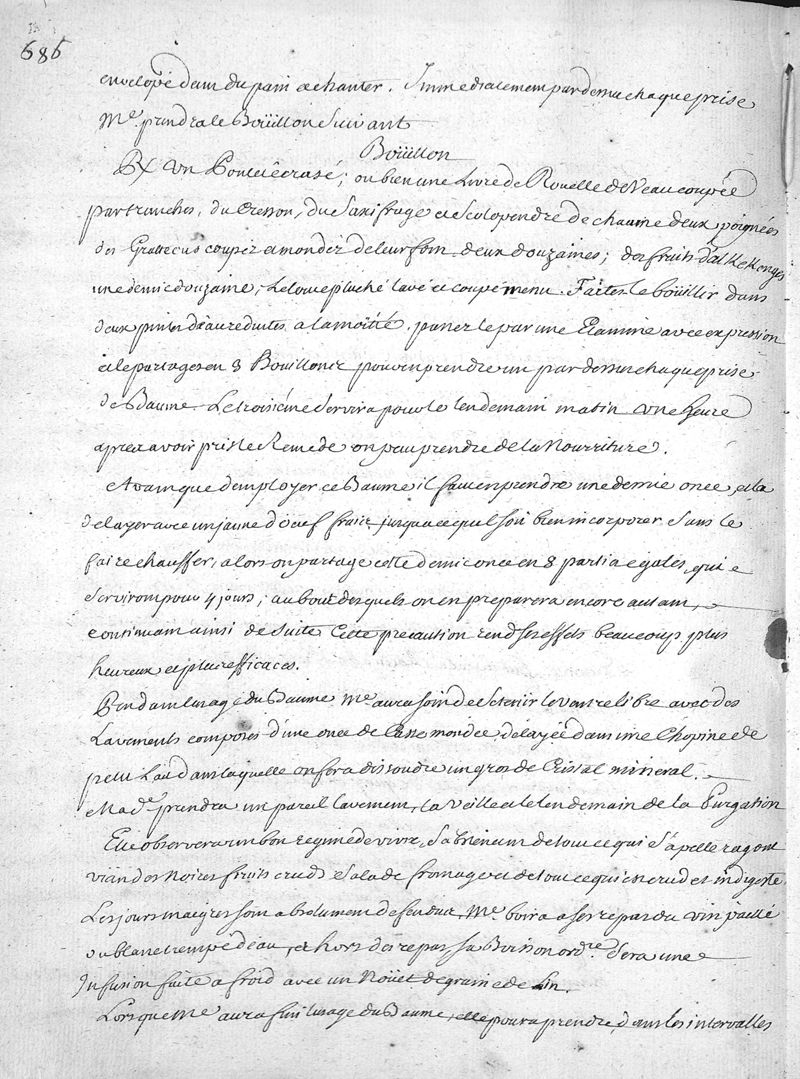 686
envelopé dans du pain a chanter. Immediatement par dessus chaque prise
Me. prendra le Boüillon Suivant
Boüillon
Rx Un Poulet écrasé; ou bien une Livre de Roüelle de Veau coupée
par tranches, du Cresson, du Saxifrage et Scolopendre de chacune deux poignées
des Grattecus coupez et mondéz de leur foin deux douzaines; des fruits d'alkekenges
une demie douzaine, Le tout épluché lavé et coupé menu. Faites le boüillir dans
deux pintes d'eau reduites a la moitié, passez le par une Etamine avec expression
et le partagez en 3 Boüillons pour en prendre un par dessus chaque prise
de Baume. Le troisiéme servira pour le lendemain matin une heure
aprez avoir pris le Remede on peut prendre de la Nourriture.
Avant que d'employer ce Baume il faut en prendre une demie once, et la
delayer avec un jaune d'oeuf frais jusqu'a ce qu'il soit bien incorporer Sans le
faire chauffer, alors on partage cette demie once en 8 parties egales, qui
serviront pour 4 jours; au bout desquels on en preparera encore autant,
continuant ainsi de Suite Cette precaution rend ses effets beaucoup plus
heureux et plus efficaces.
Pendant l'usage du Baume Me aura soin de se tenir le ventre libre avec des
Lavements composés d'une once de Casse mondée, delayée dans une Chopine de
petit Lait dans laquelle on fera dissoudre un gros de Cristal mineral.
Made prendra un pareil lavement, la veille et le lendemain de la Purgation
Elle observera un bon regime de vivre, S'abstenant de tout ce qui S'apelle ragout
viandes Noires fruits cruds Salade fromage et de tout ce qui est crud et indigeste
Les jours maigres sont absolument defendus, Me boira a ses repas du vin paillé
ou blanc trempé d'eau, et hors des repas sa Boisson ordre. Sera une
Infusion faite a froid avec un Noüet de graine de Lin.
Lorsque Me aura fini l'usage du Baume, elle poura prendre, dans les intervalles